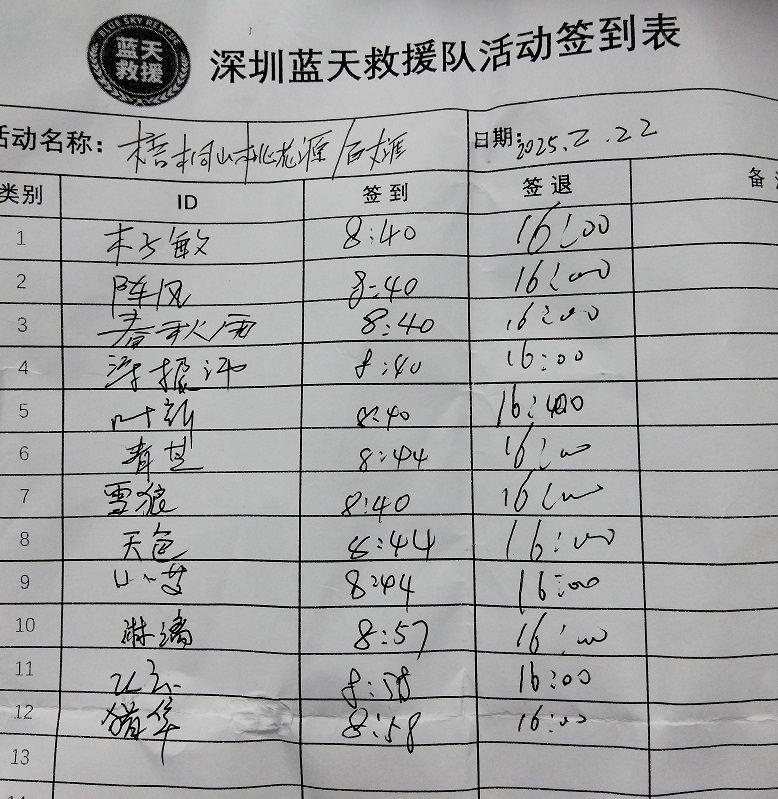 BLUE SKY RESCUE
蓝天
救援
深圳蓝天救援队活动签到表
活动名称: 梧桐山桃花源/百丈崖 日期: 2025.2.22
类别 ID 签到 签退 备注
1 木子敏 8:40 16:00
2 阵风 8:40 16:00
3 春秋雨 8:40 16:00
4 8:40 16:00
5 叶新 8:40 16:00
6 青芝 8:44 16:00
7 雪狼 8:40 16:00
8 天色 8:44 16:00
9 山小艾 8:44 16:00
10 淋漓 8:57 16:00
11 8:58 16:00
12 猎隼 8:58 16:00
13